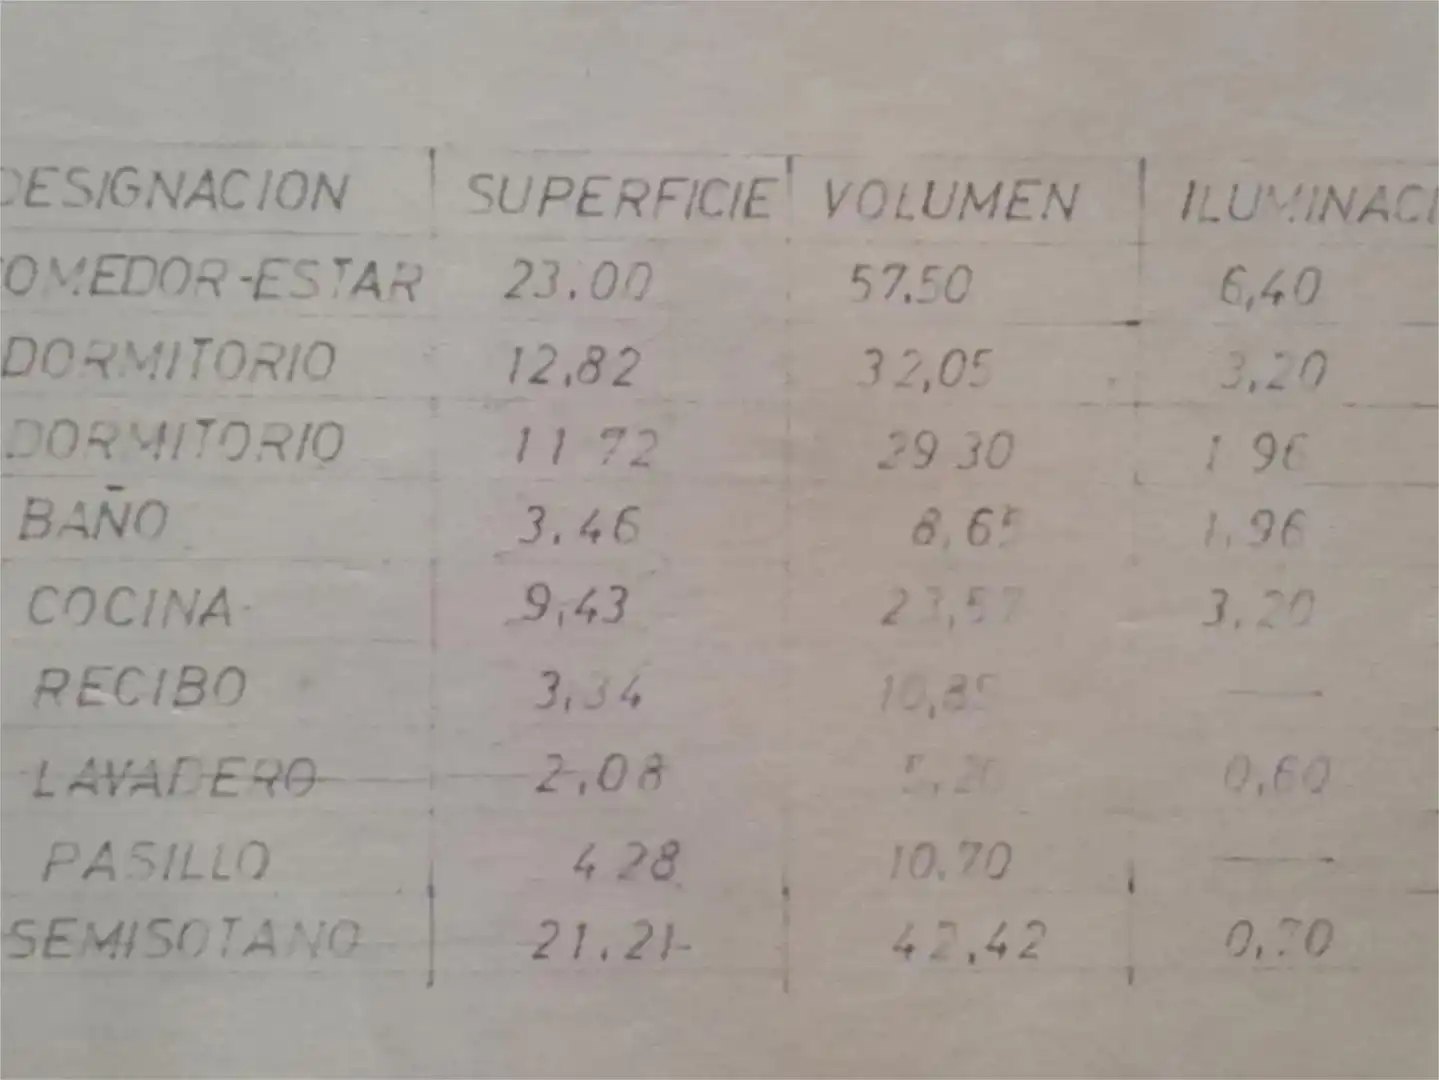 DESIGNACION SUPERFICIE VOLUMEN ILUMINACI
OMEDOR-ESTAR 23.00 57.50 6,40
DORMITORIO 12,82 32,05 3,20
DORMITORIO 11 72 29 30 1 96
BAÑO 3.46 8,65 1.96
COCINA 9,43 23,57 3.20
RECIBO 3,34 10,85 —
LAVADERO 2,08 5,20 0,60
PASILLO 4 28 10.70 —
SEMISOTANO 21.21 42,42 0,70